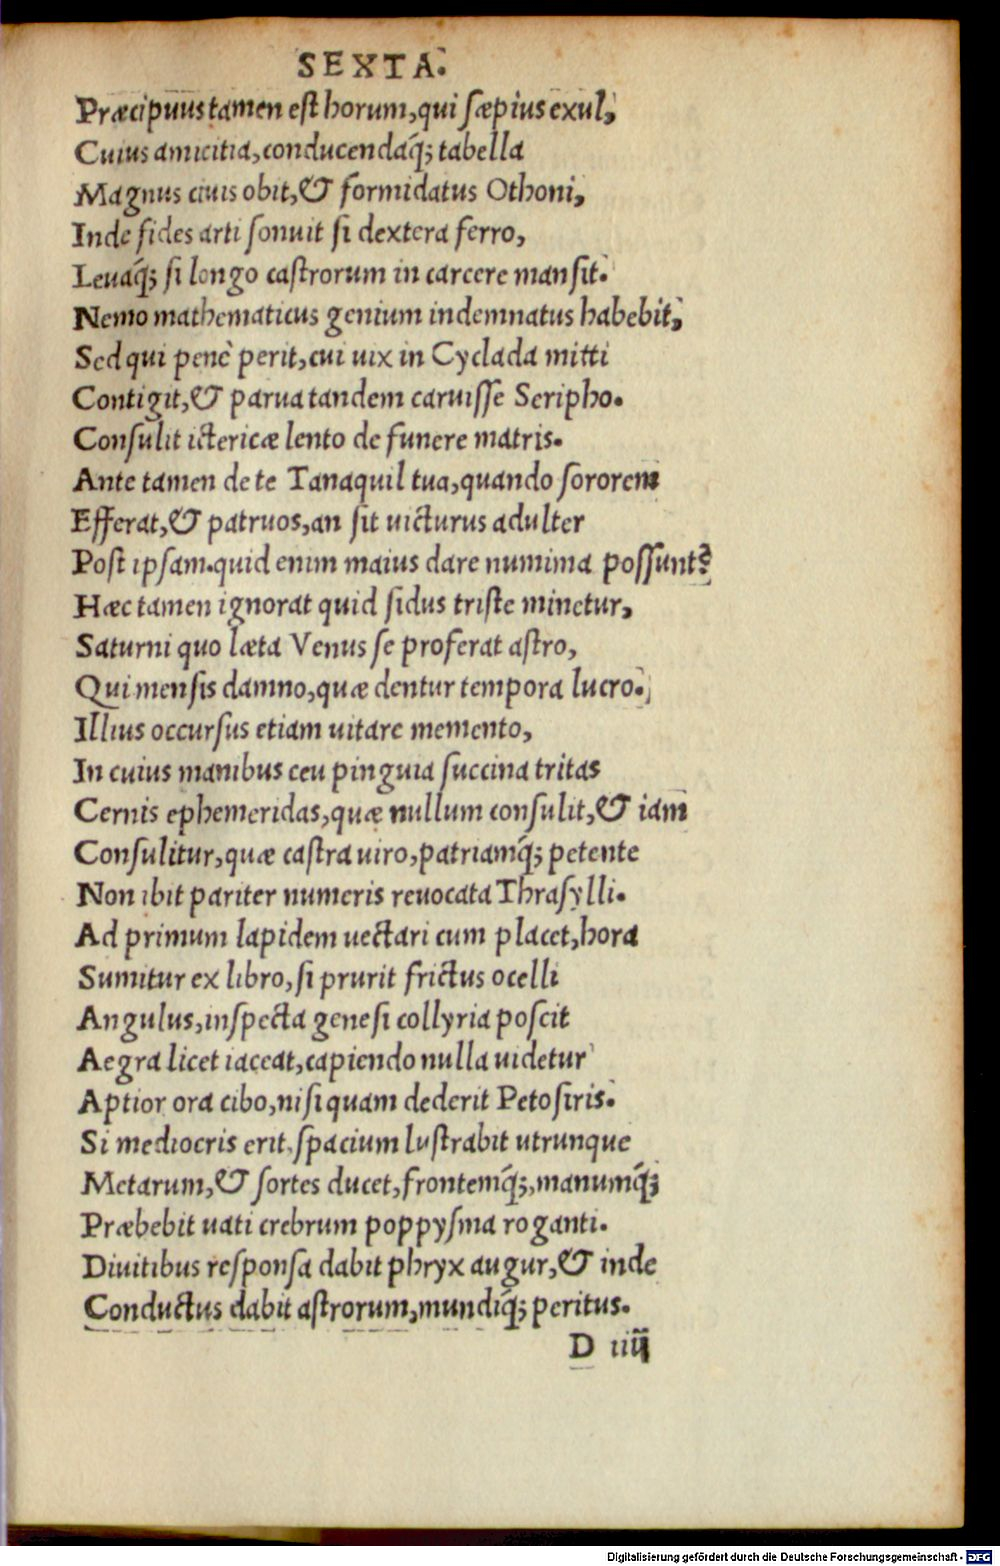 SEXTA.
Præcipuus tamen est horum, qui sæpius exul,
Cuius amicitia, conducendaq́; tabella
Magnus ciuis obit, & formidatus Othoni,
Inde fides arti sonuit si dextera ferro,
Leuaq́; si longo castrorum in carcere mansit.
Nemo mathematicus genium indemnatus habebit,
Sed qui penè perit, cui uix in Cyclada mitti
Contigit, & parua tandem caruisse Seripho.
Consulit ictericæ lento de funere matris.
Ante tamen de te Tanaquil tua, quando sororem
Efferat, & patruos, an sit uicturus adulter
Post ipsam. quid enim maius dare numina possunt?
Hæc tamen ignorat quid sidus triste minetur,
Saturni quo læta Venus se proferat astro,
Qui mensis damno, quæ dentur tempora lucro.
Illius occursus etiam uitare memento,
In cuius manibus ceu pinguia succina tritas
Cernis ephemeridas, quæ nullum consulit, & iam
Consulitur, quæ castra uiro, patriamq́; petente
Non ibit pariter numeris reuocata Thrasylli.
Ad primum lapidem uectari cum placet, hora
Sumitur ex libro, si prurit frictus ocelli
Angulus, inspecta genesi collyria poscit
Aegra licet iaceat, capiendo nulla uidetur
Aptior ora cibo, nisi quam dederit Petosiris.
Si mediocris erit, spacium lustrabit utrunque
Metarum, & sortes ducet, frontemq́;, manumq́;
Præbebit uati crebrum poppysma roganti.
Diuitibus responsa dabit phryx augur, & inde
Conductus dabit astrorum, mundiq́; peritus.
D iiij
Digitalisierung gefördert durch die Deutsche Forschungsgemeinschaft - DFG